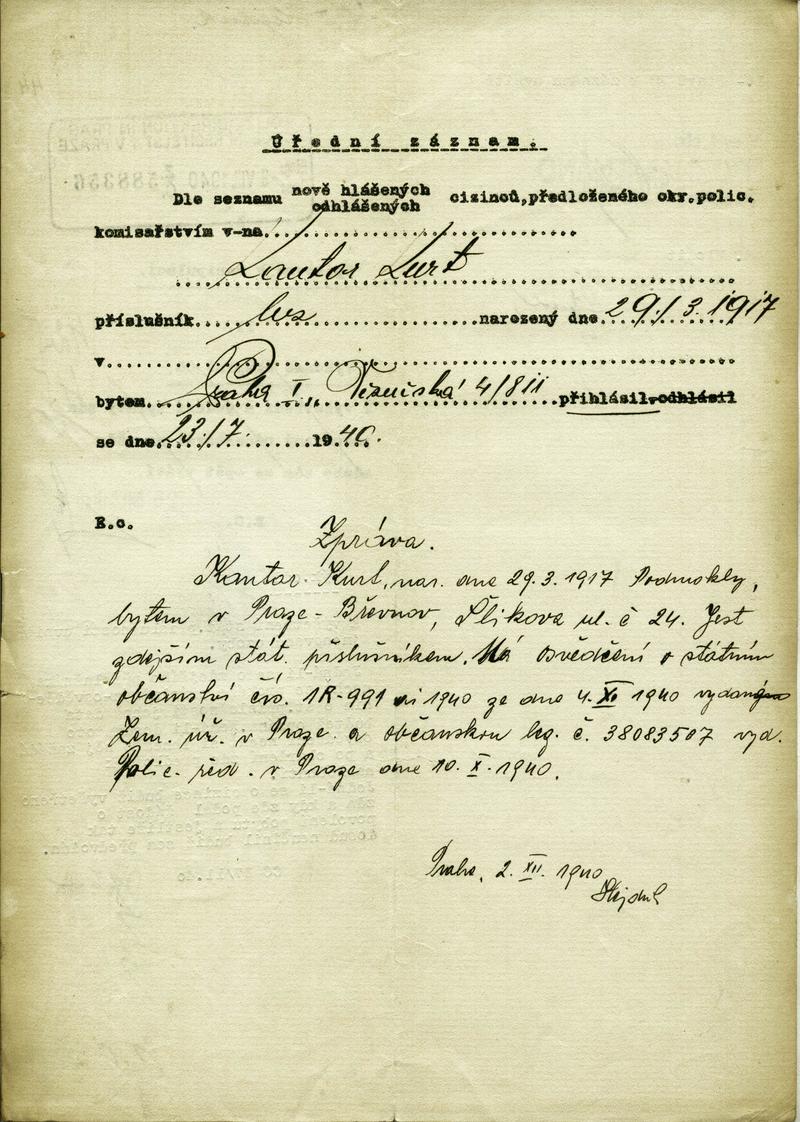 Úřední záznam.
Dle seznamu nově hlášených odhlášených cizinců, předloženého okr. polic.
komisařstvím v-na
Kantor Kurt
příslušník bez narozený dne 29/3. 1917
v
bytem Praha I., 4/811 přihlásil, odhlásil
se dne 23/7. 1940.
E.c.
Zpráva.
Kantor Kurt, nar. dne 29.3.1917 Podmokly,
bytem v Praze-Břevnov, Šlikova ul. č 24. Jest
zdejším stát. příslušníkem. Má osvědčení o státním
občanství čís. 1R-991 1940 ze dne 4. XI 1940
Zem. úř. v Praze a občanskou leg. č. 38083507 vyd.
Polic. řed. v Praze dne 10. X. 1940.
Praha, 2. XII. 1940